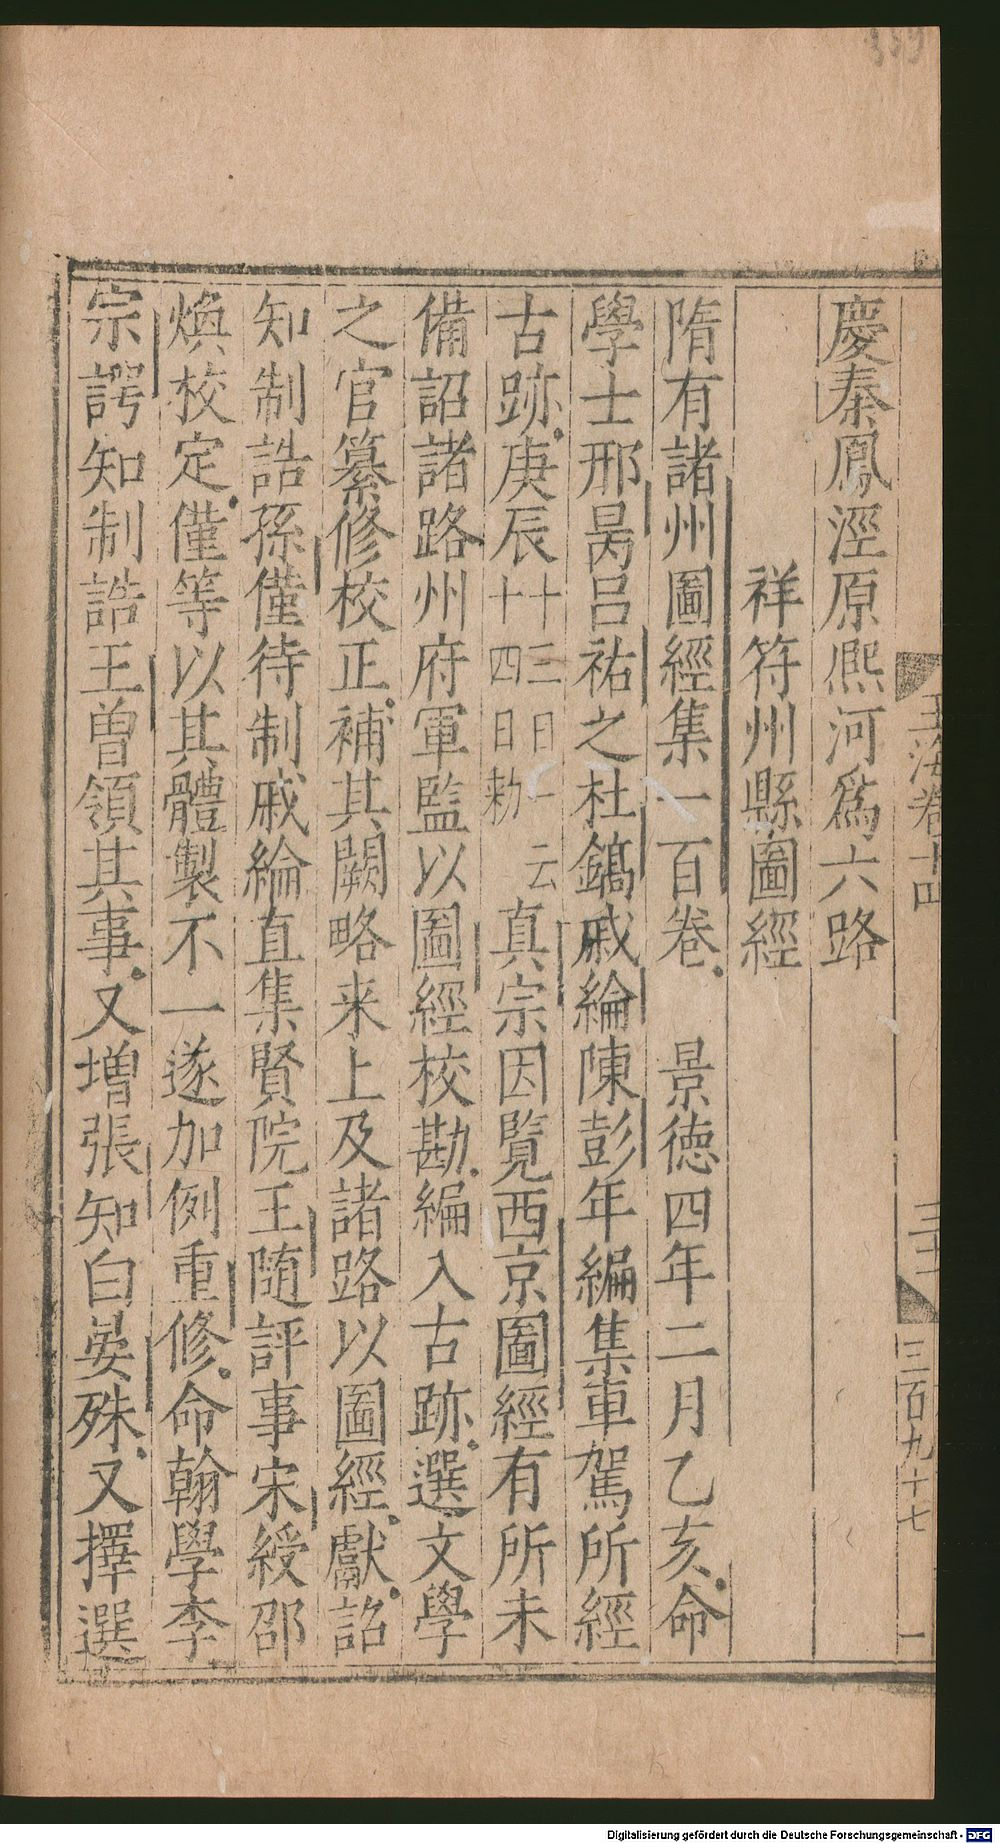 359
慶秦鳳涇原熈河爲六路
祥符州縣圖經
隋有諸州圖經集一百卷 景德四年二月乙亥命
學士邢昺呂祐之杜鎬戚綸陳彭年編集車駕所經
古跡庚辰十三日一云十四日勑真宗因覧西京圖經有所未
備詔諸路州府軍監以圖經校勘編入古跡選文學
之官纂修校正補其闕略来上及諸路以圖經獻詔
知制誥孫僅待制戚綸直集賢院王随評事宋綬邵
煥校定僅等以其體製不一遂加例重修命翰學李
宗諤知制誥王曽領其事又增張知白晏殊又擇選
玉海卷十四
三百九十七
Digitalisierung gefördert durch die Deutsche Forschungsgemeinschaft - DFG